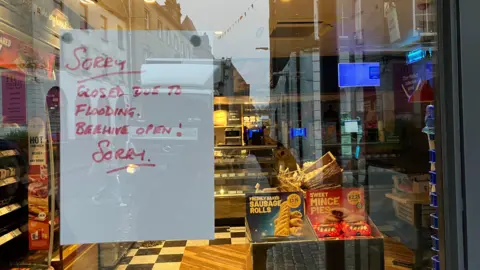 SORRY
CLOSED DUE TO
FLOODING.
BEEHIVE OPEN!
SORRY.
HOT
SAUSAGE
ROLLS
SWEET
MINCE
PIES